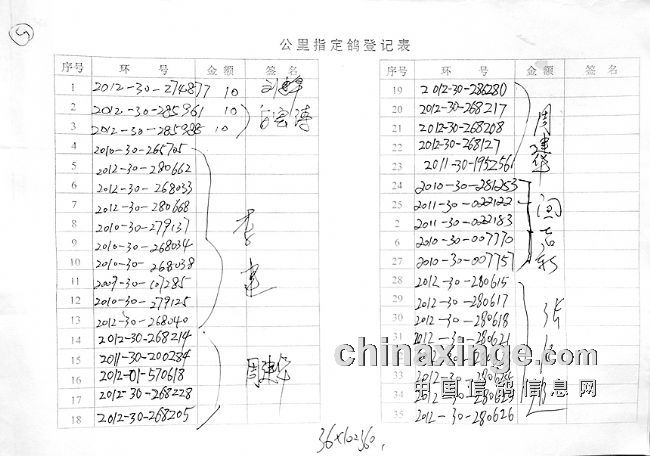 5
公里指定鸽登记表
序号 环号 金额 签名
1 2012-30-274877 10
2 2012-30-285961 10
3 2012-30-285988 10
4 2010-30-265705
5 2012-30-280662
6 2012-30-268033
7 2012-30-280668
8 2010-30-279137
9 2010-30-268034
10 2010-30-268038
11 2009-30-107285
12 2010-30-279125
13 2012-30-268040
李建
14 2012-30-268214
15 2011-30-200284
16 2012-01-570618
17 2012-30-268228
18 2012-30-268205
周建华
序号 环号 金额 签名
19 2012-30-286280
20 2012-30-268217
21 2012-30-268208
22 2012-30-268127
23 2011-30-195256
周建华
24 2010-30-281253
25 2011-30-022122
2 2011-30-022183
6 2010-30-007770
27 2010-30-007751
28 2012-30-280615
29 2012-30-280617
30 2012-30-280618
31 2012-30-280621
33 2012-30-
34 2012-30-
35 2012-30-280626
张
chinaxinge.com
中国信鸽信息网
36×10=360